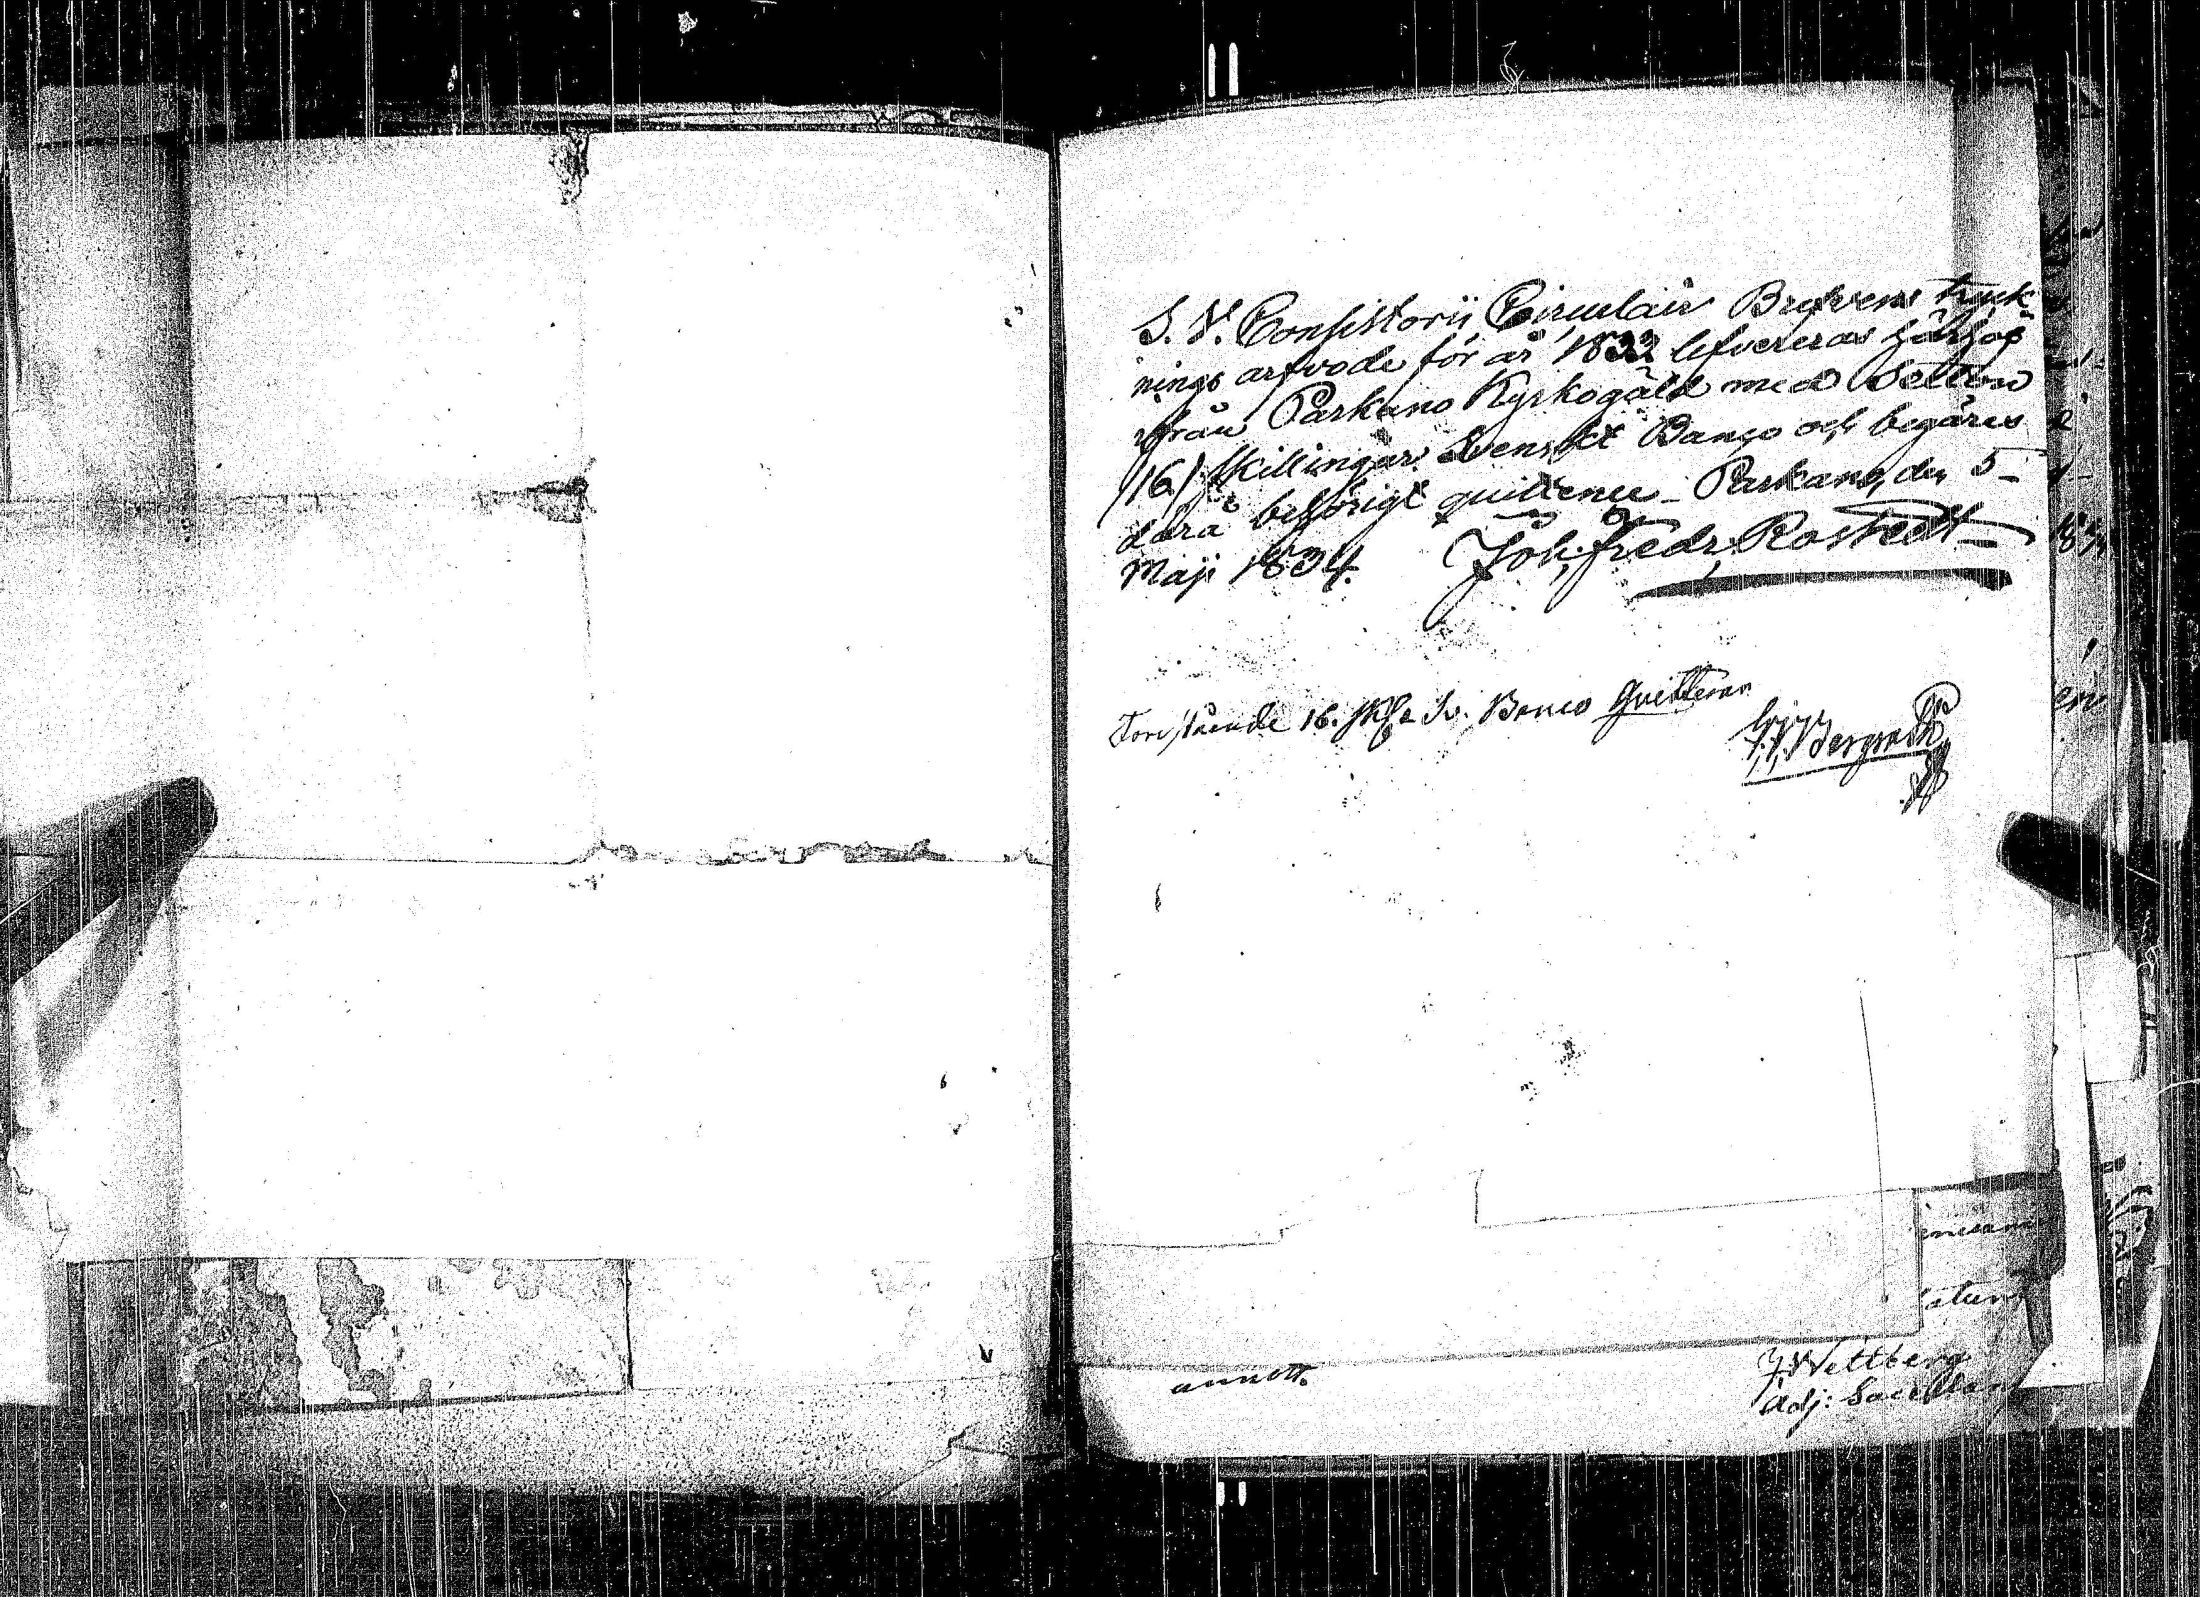 S. V. Consistorii Circulair Brefvens tryck-
nings arfvode för år 1833 lefvereras härhos
ifrån Parkano Kyrkogäld med Setton
(16) Skillingar Svenskt Banço och begäres
döra behörigt quittence. Parkano, den 5
Maji 1834. Joh. Fredr. Rostedt
Forestående 16. sk. Sv. Banco Quitteras
Bergroth
annott.
J. Wettberg
Adj: Sacellan